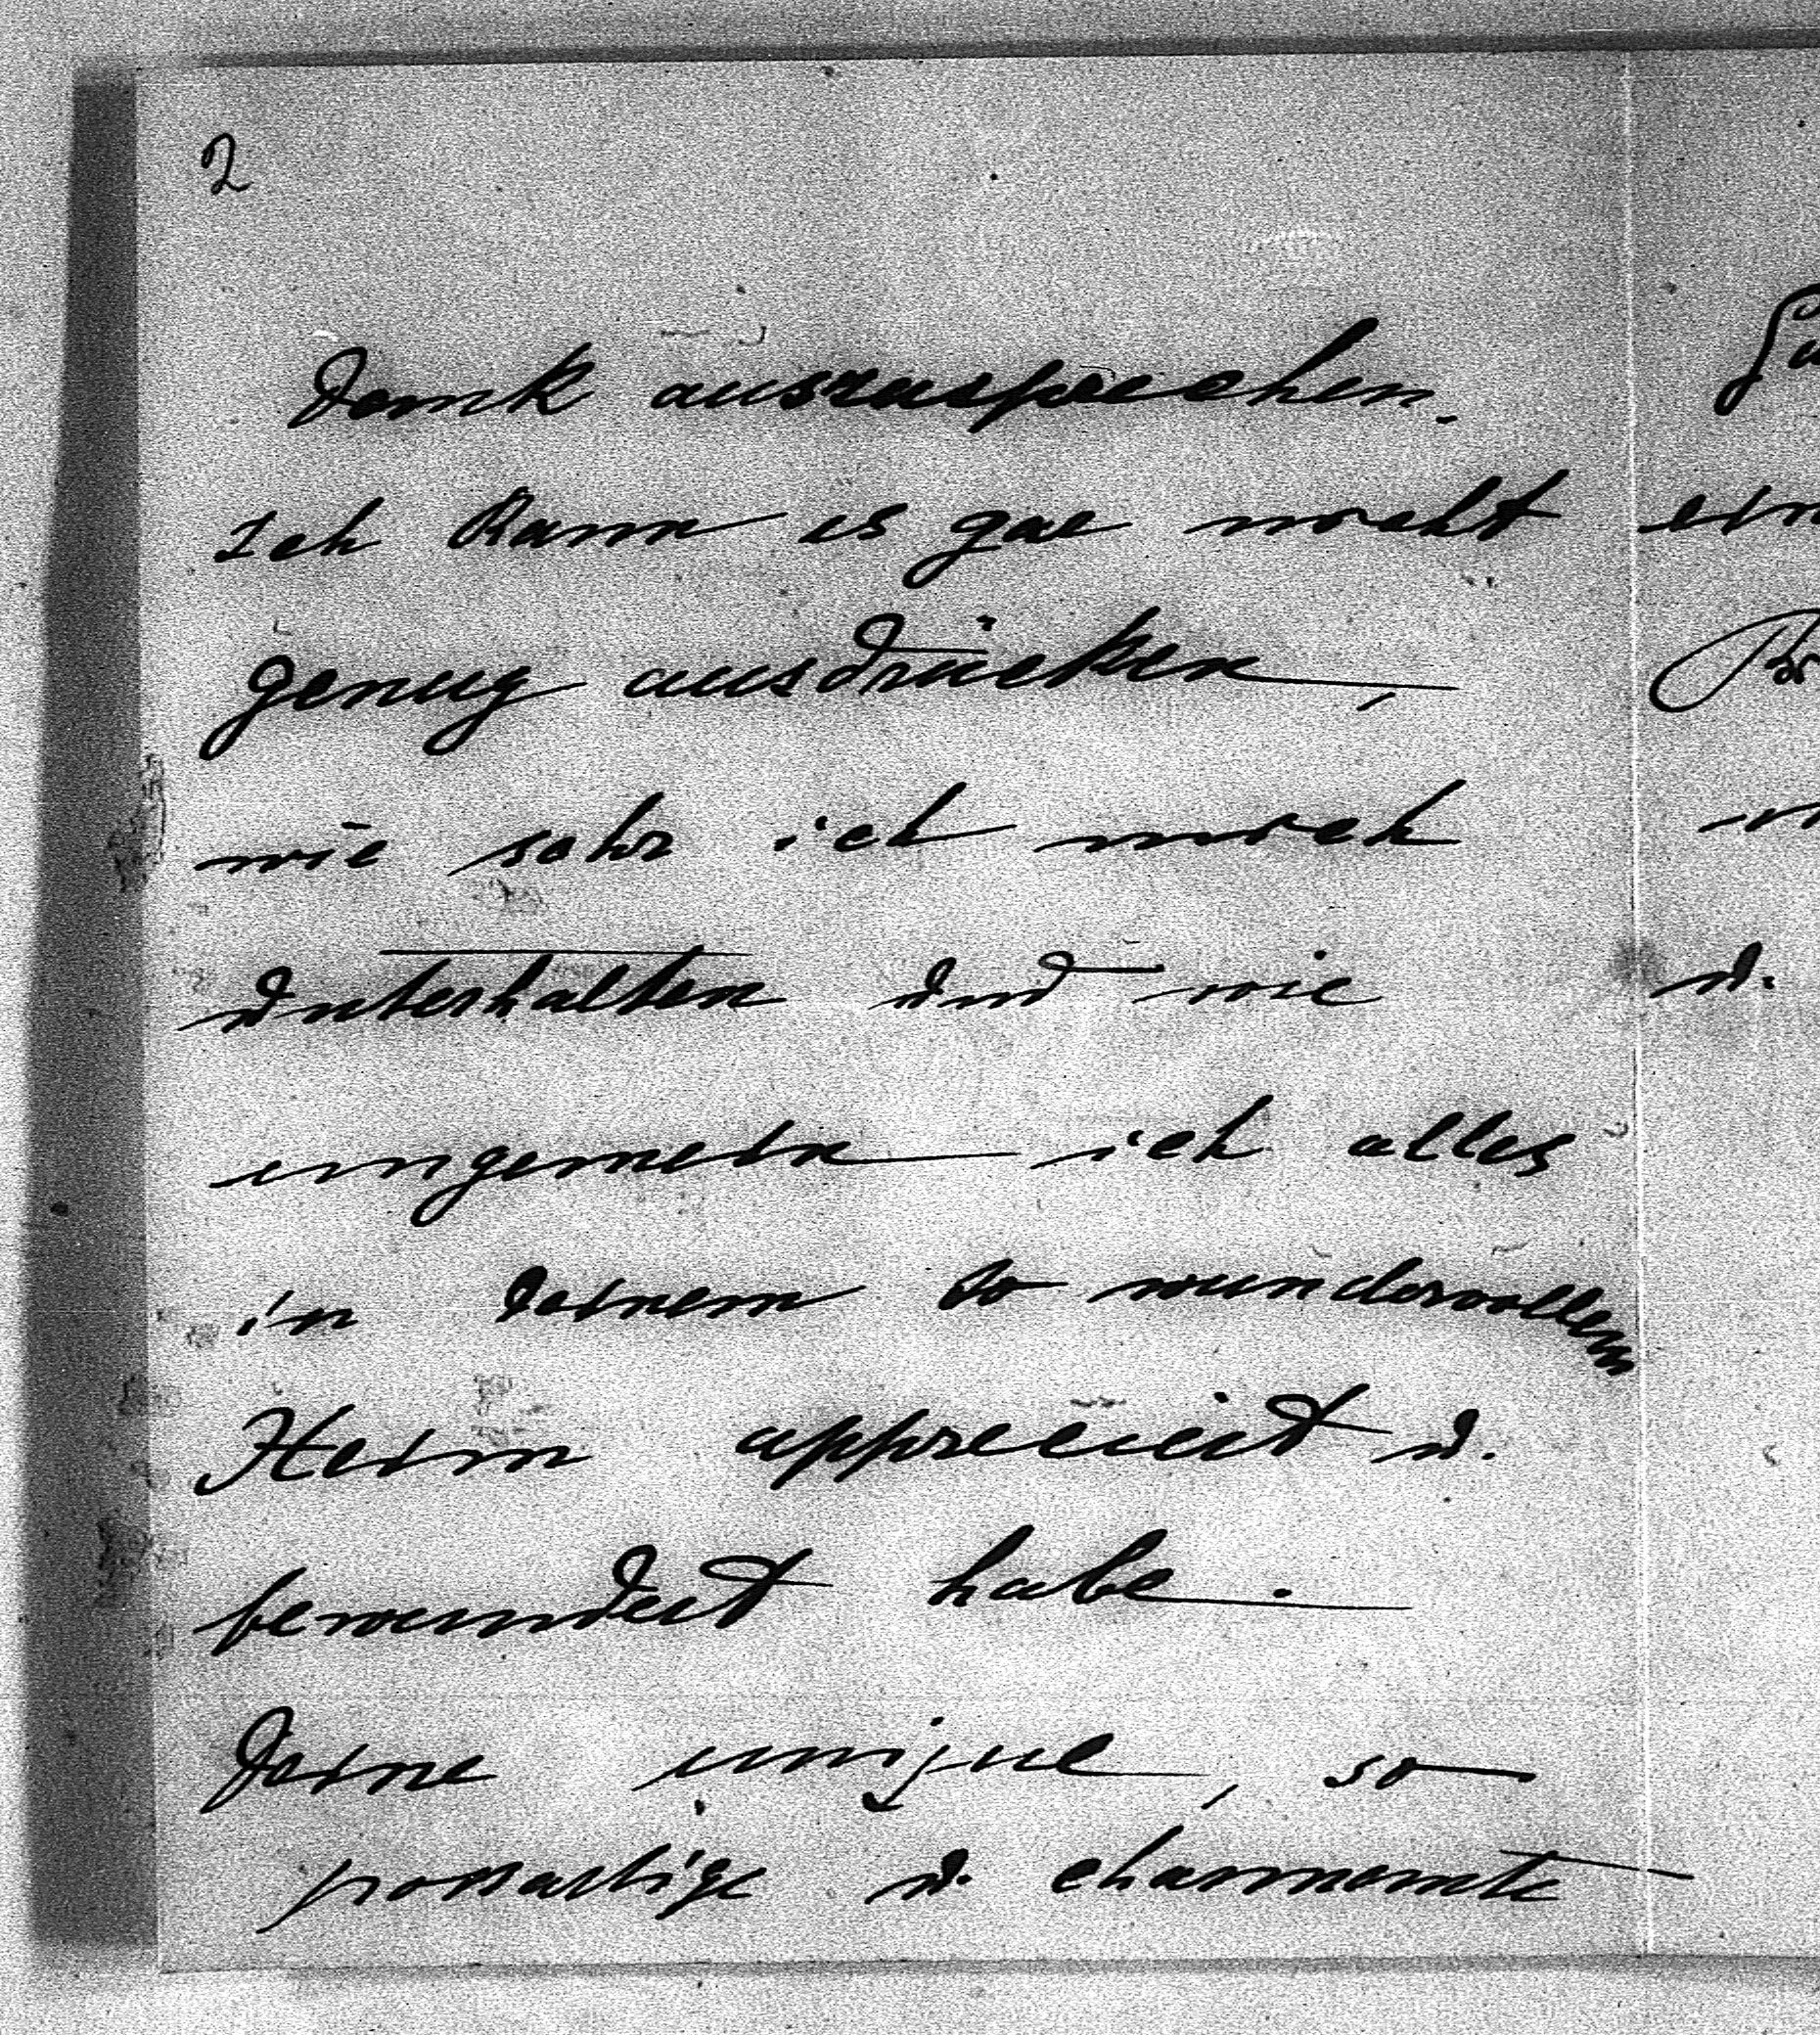 2
Dank auszusprechen.
Ich kann es gar nicht
genug ausdrücken,
wie sehr ich mich
unterhalten und wie
ungemein ich alles
in Deinem so wundervollen
Heim appreciirt u.
bewundert habe.
Deine unique, so
grossartige u. charmante